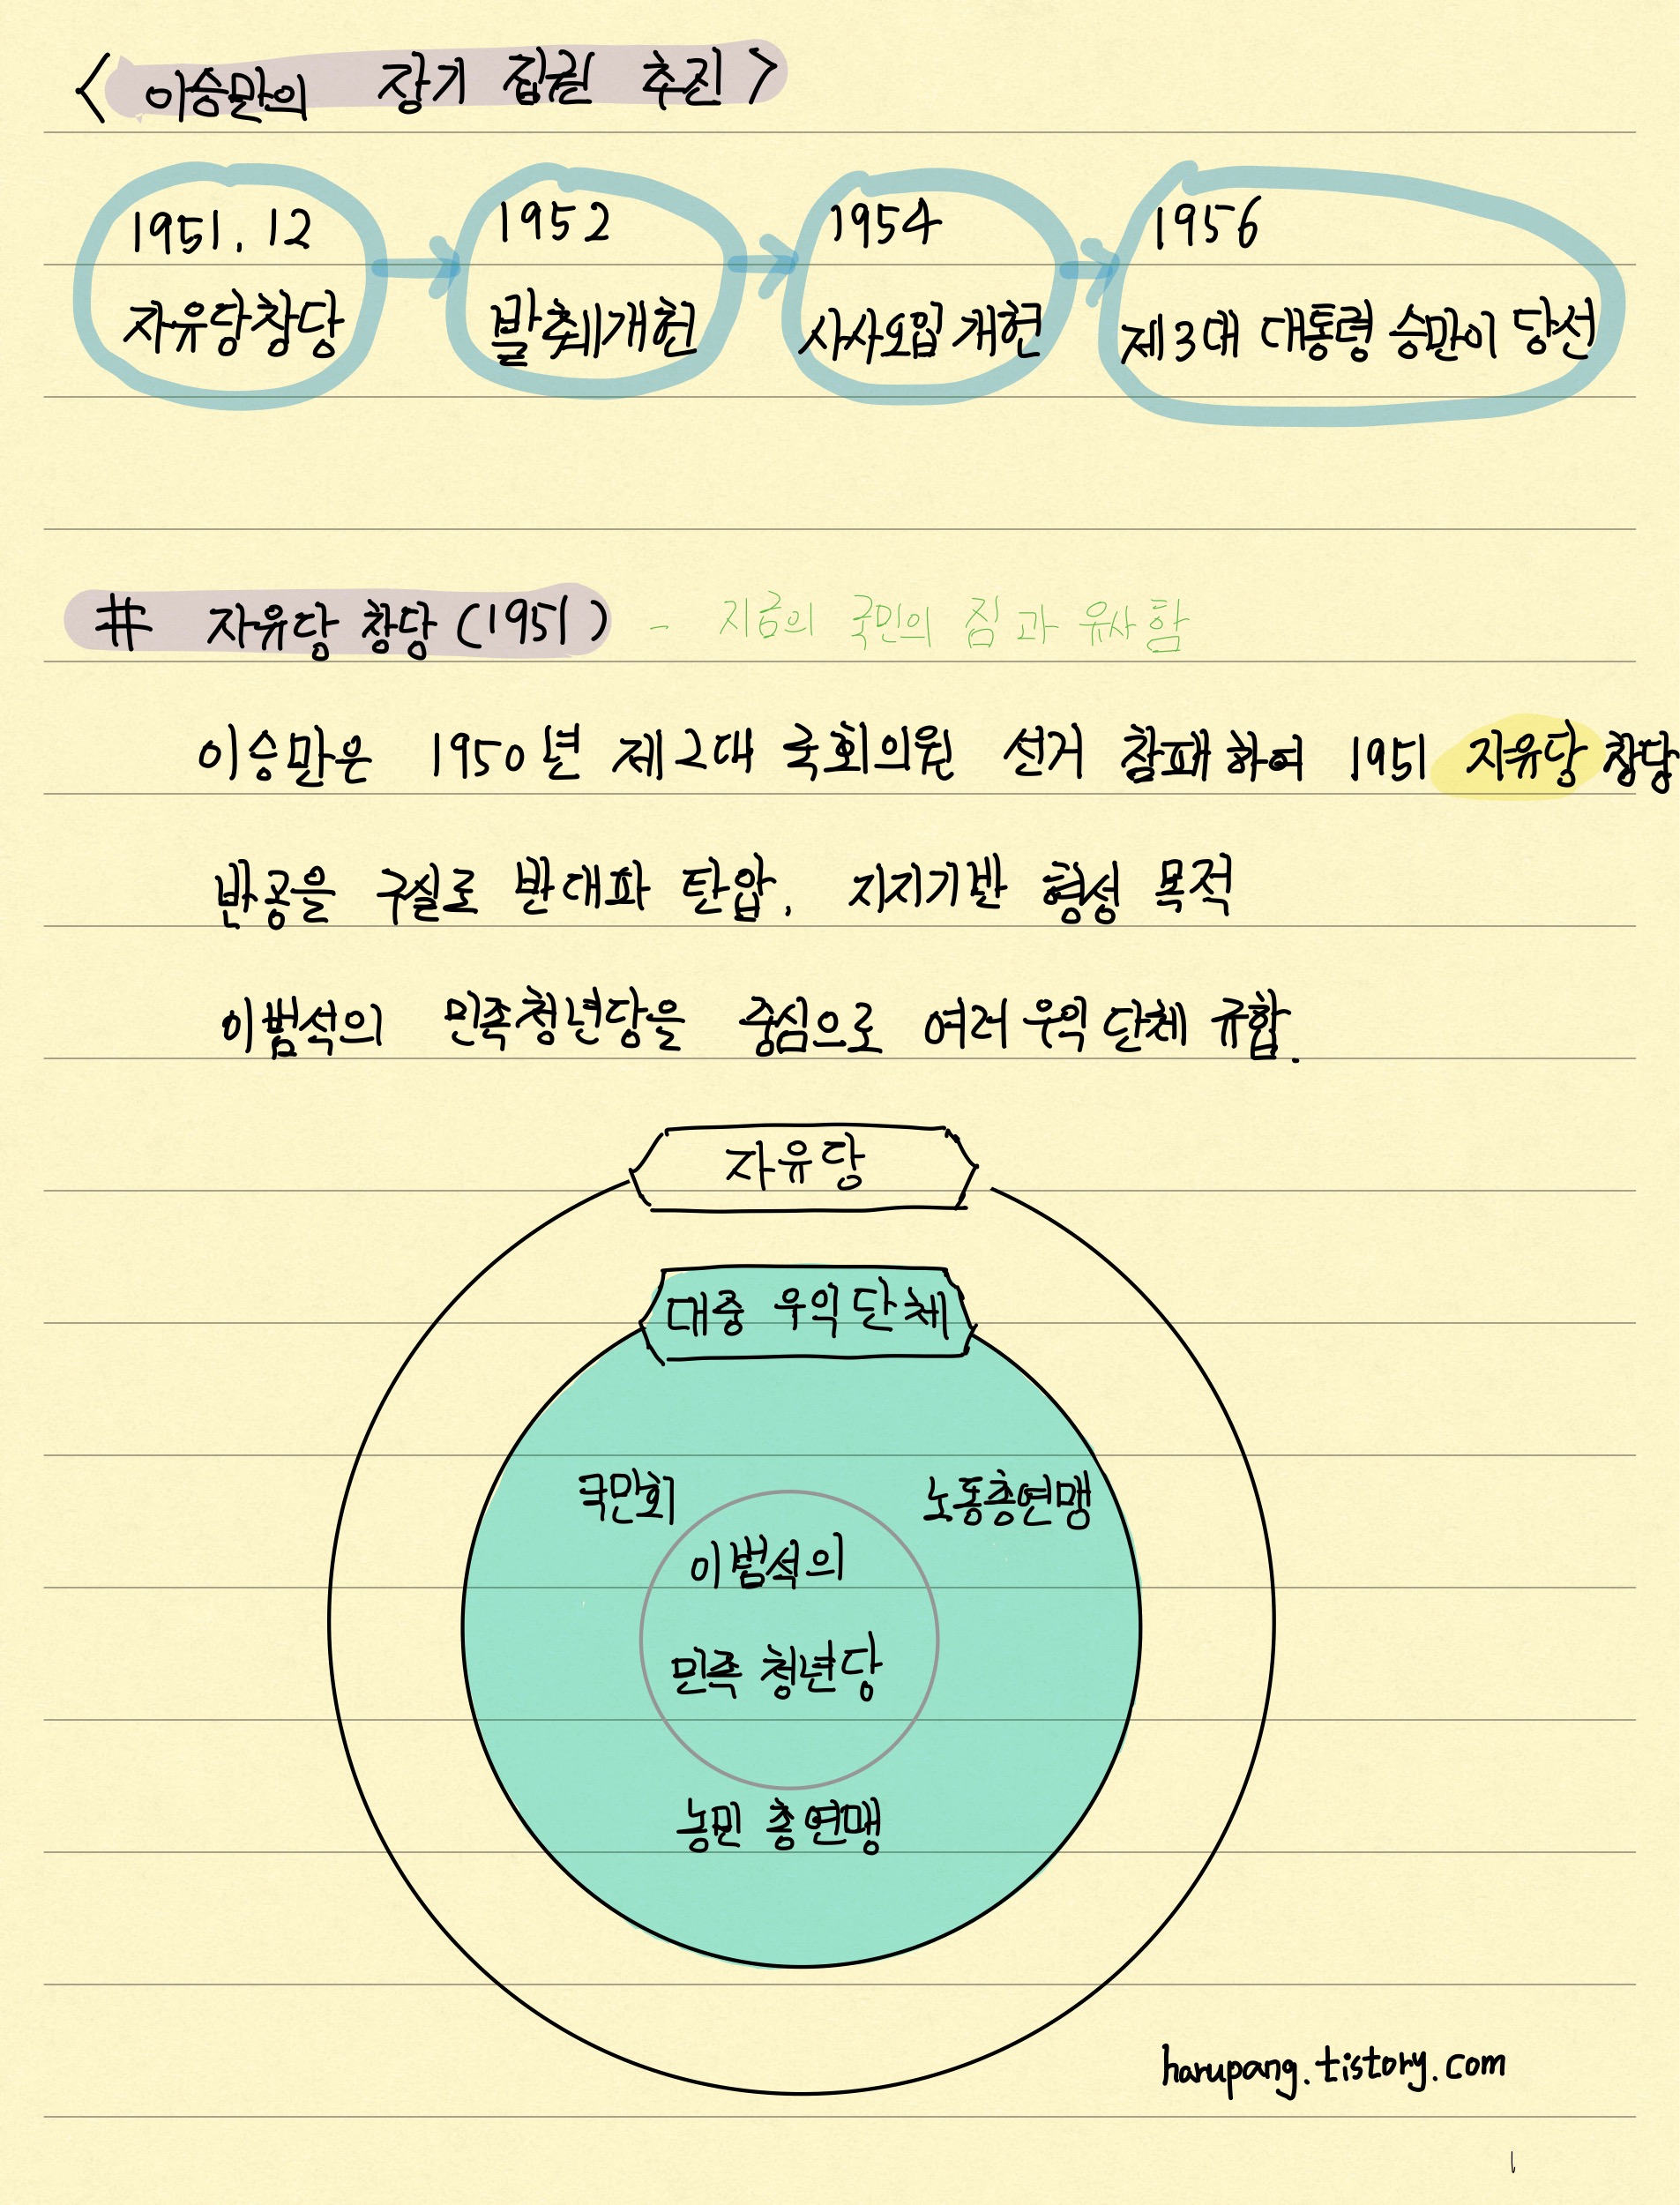 <이승만의 장기 집권 추진>
1951. 12
자유당창당
1952
발췌개헌
1954
사사오입 개헌
1956
제3대 대통령 승만이 당선
# 자유당 창당 (1951) - 지금의 국민의 짐과 유사함
이승만은 1950년 제2대 국회의원 선거 참패하여 1951 자유당 창당
반공을 구실로 반대파 탄압. 지지기반 형성 목적
이범석의 민족청년당을 중심으로 여러 우익 단체 규합.
자유당
대중 우익단체
국민회
노동총연맹
이범석의
민족 청년당
농민 총연맹
harupang.tistory.com